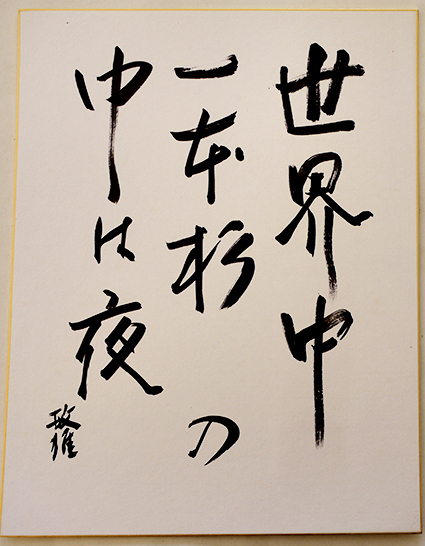 世界中
一本杉の
中は夜
玫雄